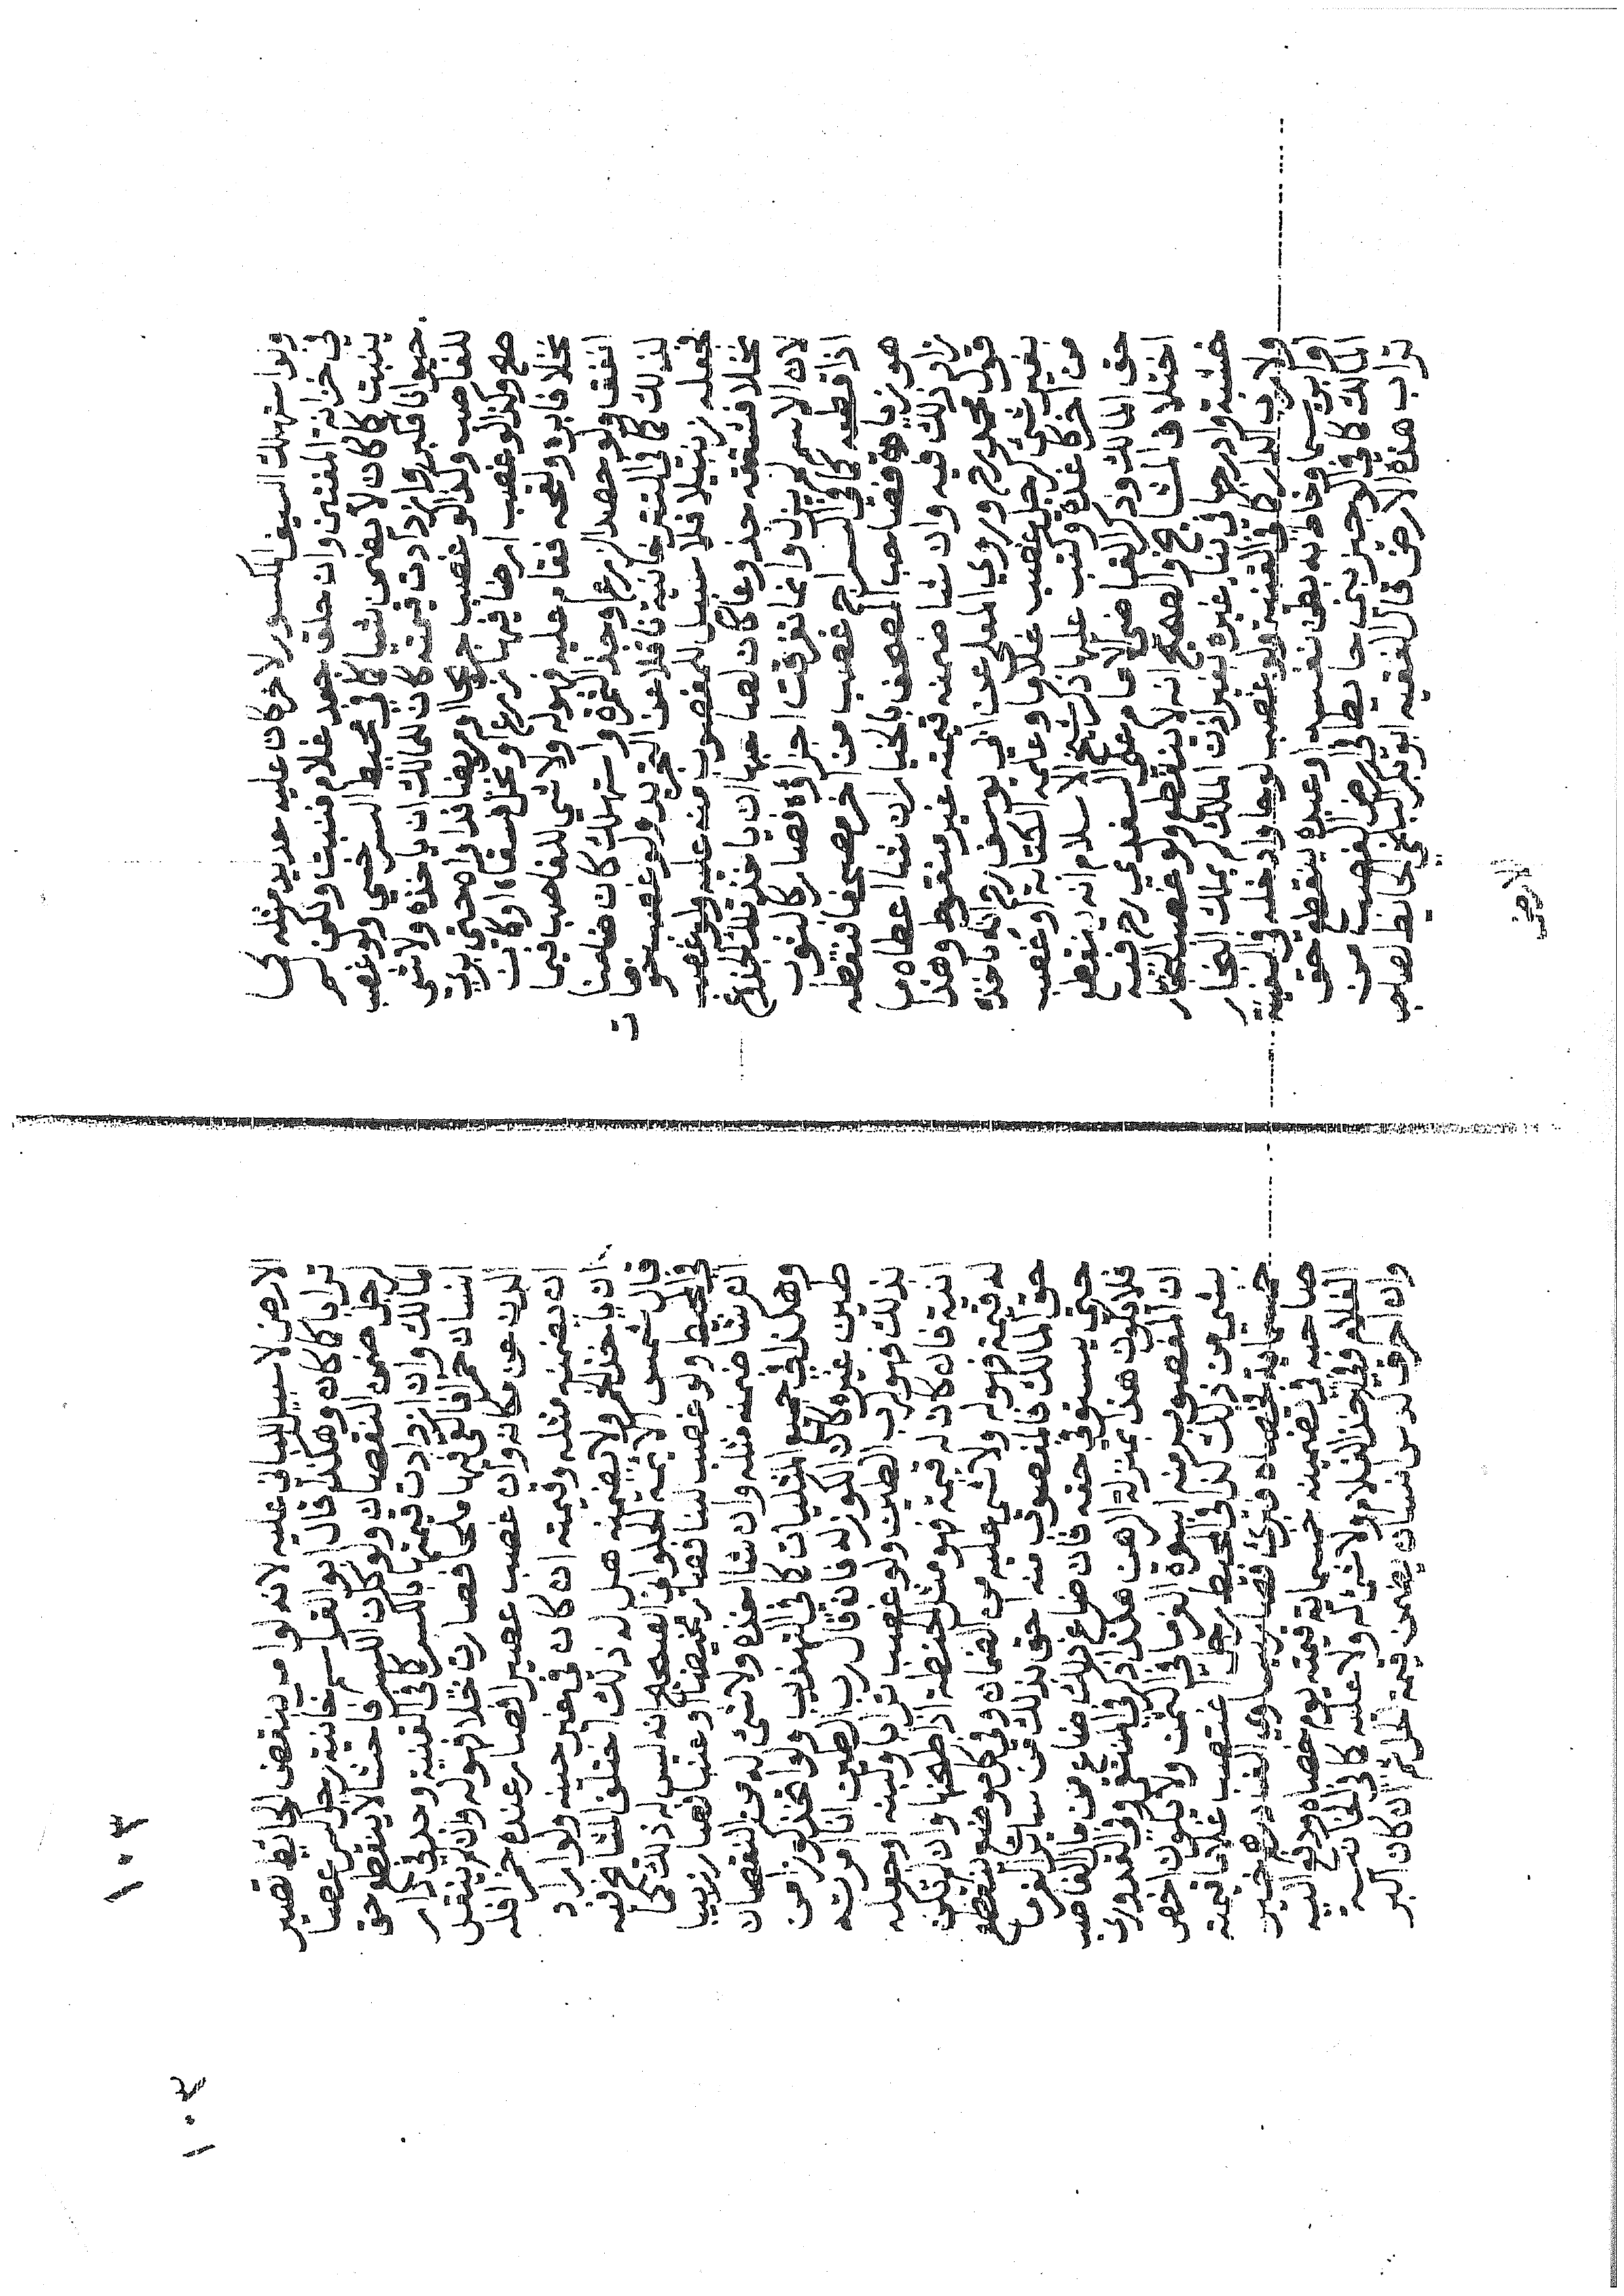 ولو استهلك السيف المكسور لاخر كان عليه حديد مثله كما
في خزانة المفتين وان حلق جعد غلام فنبت ولكن لم
ينبت كما كان لا يضمن شيا كما في محيط السرخسي ولو غصب
حيوانا فكبر وازدادت قيمته كان للمالك ان ياخذه ولا شي
للغاصب وكذا لو غصب جريحا او مريضا فداواه حتى برئ
صح وكذا لو غصب ارضا فيها زرع او نخل فسقاه او كان
نخلا فابره ولقحه فقام عليه فهو له ولا شي للغاصب فيما
انفق ولو حصد الزرع او جذ الثمرة واستهلك كان ضامنا
لذلك كما في التتر خانية ناقلا عن التجريد ولو غصب خوصا
فجعله زنبيلا فلا سبيل للمغصوب منه عليه ولو غصب
نخلا فشققه جذوعا كان لصاحبها ان ياخذ تلك الجذوع
لان الاسم لم يزل وانما تفرقت اجزاؤه فصار كالثوب
اذا قطعه كما في السراج غصب من اخر مصحفا فنقطه
هو زيادة فصاحب المصحف بالخيار ان شا اعطاه ما
زاد ذلك فيه وان شا ضمنه قيمته غير منقوط وهذا
قول محمد رح وروي المعلى عن ابي يوسف رح انه ياخذه
بغير شي كرجل غصب غلاما وعلمه الكتابة او غصب
من اخر كاغدة وكتب عليها ذكر شيخ الاسلام انه ينقطع
حق المالك وذكر القاضي الامام علي السغدي رح فيه
اختلاف المشايخ والصحيح انه لا ينقطع ولو غصب النجار
خشبة وادرجها في بناء غيره بغير اذن الملك لم يملك النجار
ولا رب الدار كما في القنية ولو غصب لوحا وادخله في السفينة
او ابرسيما وخاط به بطن نفسه او عبده ينقطع حق
المالك كما في الوجيز بنى حايطا في ارض الغصب من
تراب هذه الارض قال الفقيه ابو بكر البلخي الحايط لصاحب
الارض
الارض لا سبيل للباني عليه لانه لو امر بنقض الحايط تصير
ترابا كما كان وهكذا قال ابو القاسم خانية رجل كسر عصا
رجل ضمن النقصان ولو كان الكسر فاحشا لا ينقطع حق
المالك وان ازدادت قيمتها بالكسر كما في القنية وجد في دار
انسان خمرا فالقى فيها ملحا فصارت خلا فهو له وان لم ينقل
الدن عن مكانه وان غصب عصيرا فصار عنده خمرا فله
ان يضمنه مثله وقيمته ان كان في غير حينه ولو اراد
ان ياخذ الخمر ولا يضمنه هل له ذلك اختلف المشايخ فيه
قال شمس الايمة الحلواني الصحيح انه ليس له ذلك كما
في المحيط ولو غصب لبنا فصار مخيضا او عنبا فصار زبيبا
ان شا ضمنه مثله وان شا اخذه ولا شي له من النقصان
وهكذا في جميع المثليات كما في التهذيب ولو اتخذ كوزا من
طين غيره كان الكوز له فان قال رب الطين انا امرته
بذلك فهو لرب الطين ولو غصب ترابا ولبنه او جعله
انية فان كان له قيمة فهو مثل الحنطة اذا طحنها وان لم تكن
له قيمة فهو له ولا شي عليه من الضمان وفي كل موضع ينقطع
حق المالك فالمغصوب منه احق بذلك من سائر الغرما
حتى يستوفي حقه فان ضاع ذلك ضاع من مال الغاصب
فلا يكون هذا بمنزلة الرهن هكذا ذكر في المنتقى وفي القدوري
ان المغصوب منه اسوة الغرما في الثمن ولا يكون اخص
بشي من ذلك كذا في المحيط رجل اغتصب غلاما قيمته
خمسماية فخصاه فبرئ فصار يساوي الفا درهم خير
صاحبه في تضمينه خمسماية قيمته يوم خصاه ودفع اليه
الغلام وفي اخذ الغلام ولا شي له ولا عليه كما في الخانية
وان احرق كدس انسان يضمن قيمة ثم ان كان البر
١٠٣
١٠٢